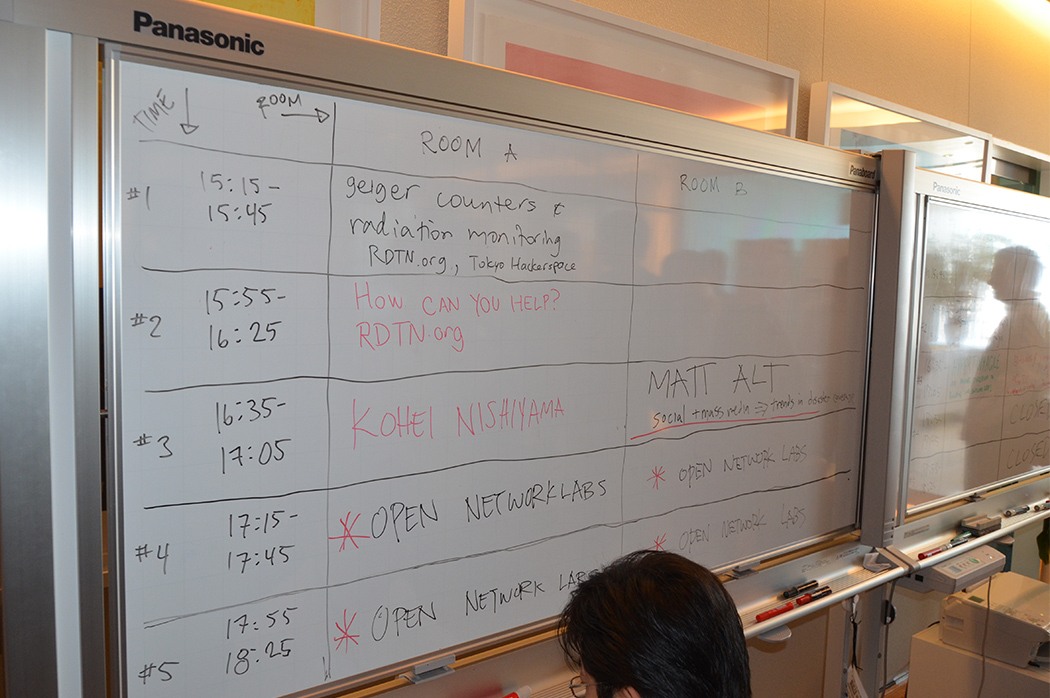 Panasonic
TIME
ROOM
ROOM A
ROOM B
#1
15:15-
15:45
geiger counters &
radiation monitoring
RDTN.org, Tokyo Hackerspace
#2
15:55-
16:25
HOW CAN YOU HELP?
RDTN.org
#3
16:35-
17:05
KOHEI NISHIYAMA
MATT ALT
social + mass media => trends in disaster
#4
17:15-
17:45
* OPEN NETWORK LABS
* OPEN NETWORK LABS
#5
17:55
18:25
* OPEN NETWORK LABS
* OPEN NETWORK LABS
Panaboard
Panasonic
CLOSED
CLOSED